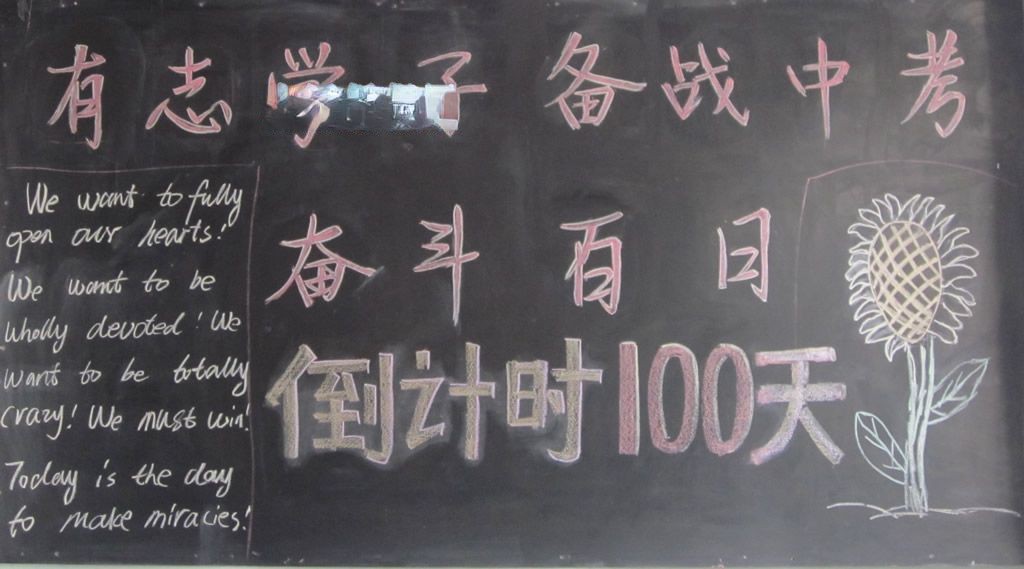 有志学子 备战中考
We want to fully
open our hearts!
We want to be
wholly devoted! We
want to be totally
crazy! We must win!
Today is the day
to make miracies!
奋斗百日
倒计时100天